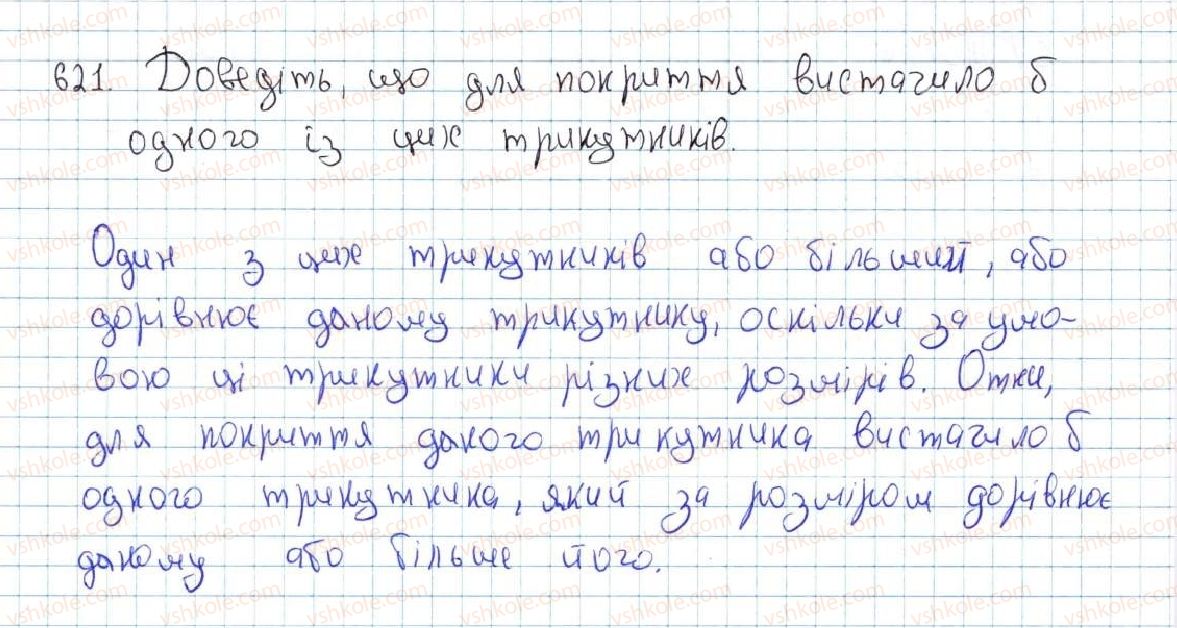 621. Доведіть, що для покриття вистачило б
одного із цих трикутників.
Один з цих трикутників або більший, або
дорівнює даному трикутнику, оскільки за умо-
вою ці трикутники різних розмірів. Отже,
для покриття даного трикутника вистачило б
одного трикутника, який за розміром дорівнює
даному або більше його.